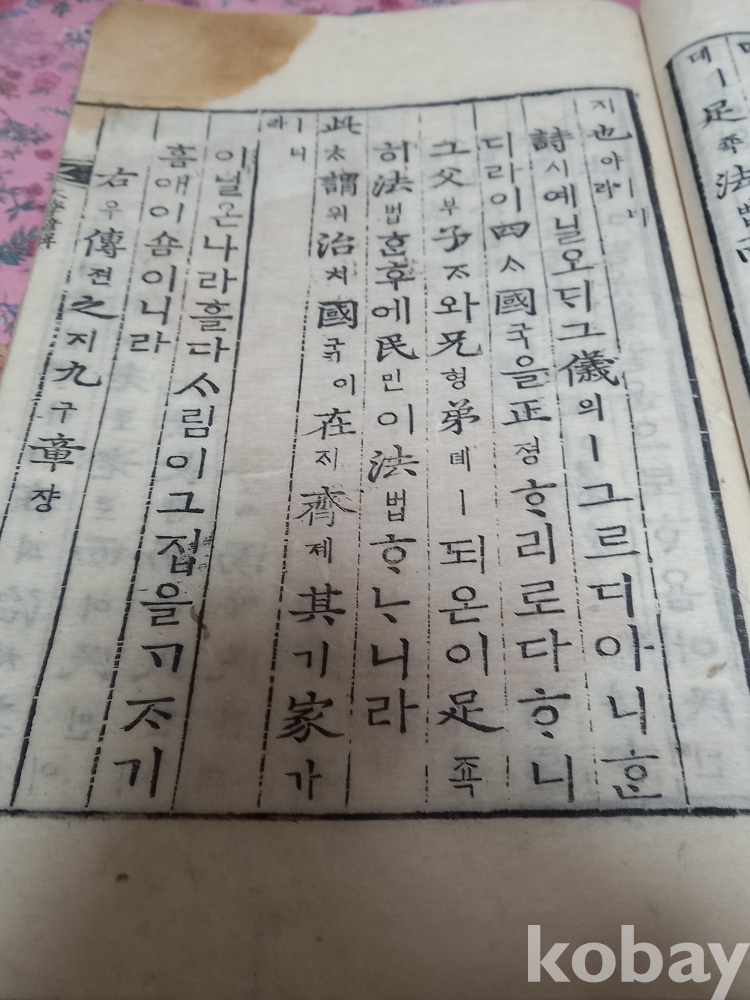 대ㅣ足쪽法법
지也야ㅣ니라
詩시예닐오ᄃᆡ그儀의ㅣ그르디아니ᄒᆞᆫ
디라이四ᄉᆞ國국을正졍ᄒᆞ리로다ᄒᆞ니
그父부子ᄌᆞ와兄형弟뎨ㅣ되온이足죡
히法법ᄒᆞᆫ후에民민이法법ᄒᆞᄂᆞ니라
此ᄎᆞ謂위治치國국이在ᄌᆡ齊제其기家가
ㅣ니라
이닐온나라흘다ᄉᆞ림이그집을ᄀᆞᄌᆞ기
홈애이숌이니라
右우傳젼之지九구章쟝
kobay